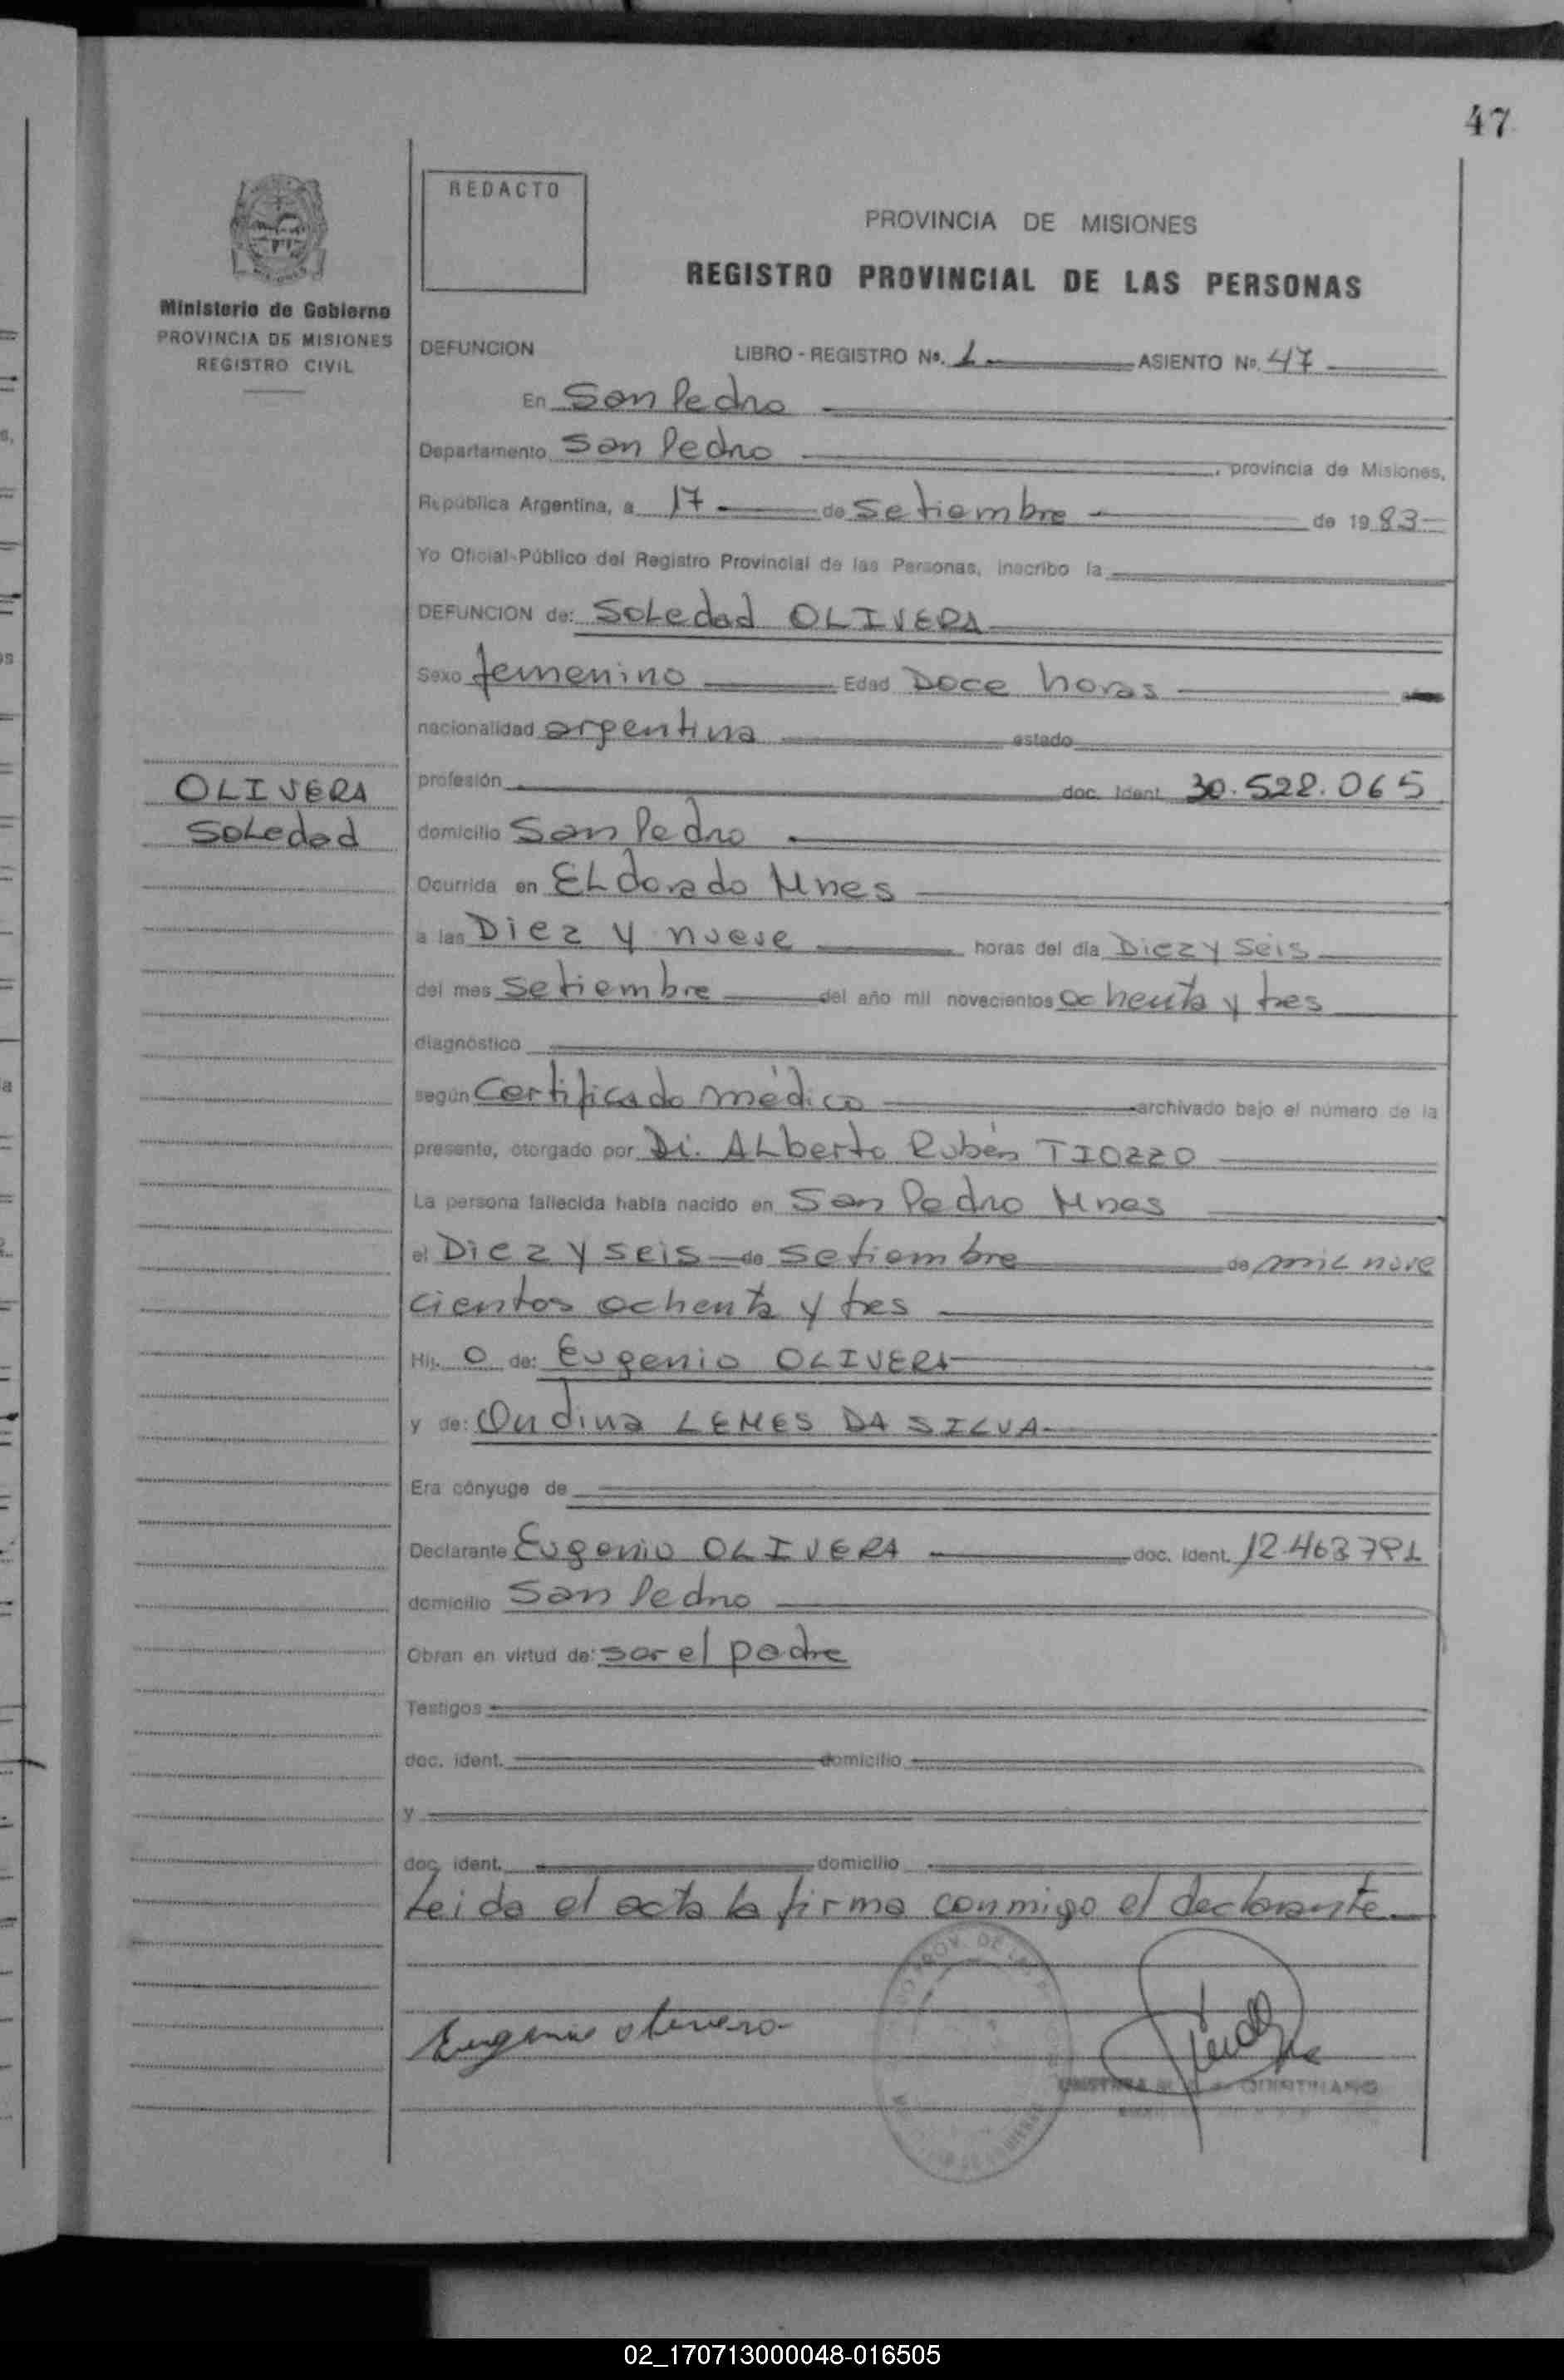 47
REDACTO
PROVINCIA DE MISIONES
REGISTRO PROVINCIAL DE LAS PERSONAS
Ministerio de Gobierno
PROVINCIA DE MISIONES
REGISTRO CIVIL
DEFUNCION LIBRO - REGISTRO Nº. 1 ASIENTO Nº. 47
En San Pedro
Departamento San Pedro, provincia de Misiones,
República Argentina, a 17 de Setiembre de 1983
Yo Oficial Público del Registro Provincial de las Personas, inscribo la
DEFUNCION de: Soledad OLIVERA
Sexo femenino Edad Doce horas
nacionalidad argentina estado
OLIVERA
Soledad
profesión doc. ident. 30.528.065
domicilio San Pedro
Ocurrida en ELdorado Mnes
a las Diez y nueve horas del día Diez y seis
del mes Setiembre del año mil novecientos ochenta y tres
diagnóstico
según Certificado médico archivado bajo el número de la
presente, otorgado por Dr. ALberto Rubén TIOZZO
La persona fallecida había nacido en San Pedro Mnes
el Diez y seis de Setiembre de mil nove
cientos ochenta y tres
Hij. o de: Eugenio OLIVERA
y de: Ondina LEMES DA SILVA
Era cónyuge de
Declarante Eugenio OLIVERA doc. ident. 12.463791
domicilio San Pedro
Obran en virtud de: ser el padre
Testigos
doc. ident. domicilio
y
doc. ident. domicilio
Leida el acta la firma conmigo el declarante
Eugenio olivera
02_170713000048-016505